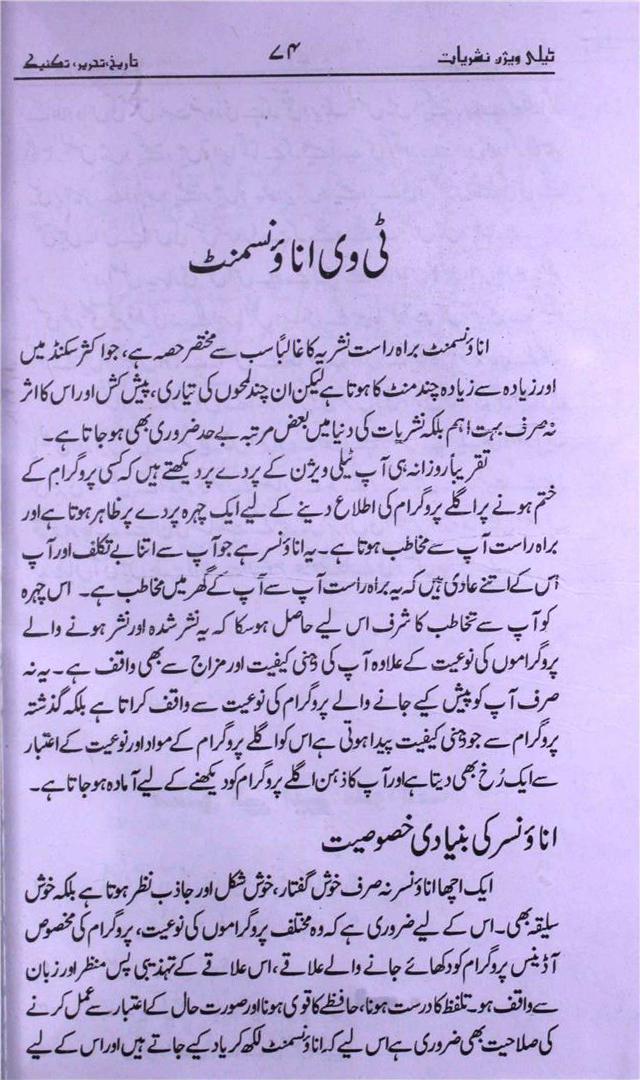 ٹیلی ویژن نشریات ۷۴ تاریخ، تحریر، تکنیک
ٹی وی اناؤنسمنٹ
اناؤنسمنٹ براہ راست نشریہ کا غالباً سب سے مختصر حصہ ہے، جو اکثر سکنڈ میں
اور زیادہ سے زیادہ چند منٹ کا ہوتا ہے لیکن ان چند لمحوں کی تیاری، پیش کش اور اس کا اثر
نہ صرف بہت اہم بلکہ نشریات کی دنیا میں بعض مرتبہ بے حد ضروری بھی ہو جاتا ہے۔
تقریباً روزانہ ہی آپ ٹیلی ویژن کے پردے پر دیکھتے ہیں کہ کسی پروگرام کے
ختم ہونے پر اگلے پروگرام کی اطلاع دینے کے لیے ایک چہرہ پردے پر ظاہر ہوتا ہے اور
براہ راست آپ سے مخاطب ہوتا ہے۔ یہ اناؤنسر ہے جو آپ سے اتنا بے تکلف اور آپ
اس کے اتنے عادی ہیں کہ یہ براہ راست آپ سے آپ کے گھر میں مخاطب ہے۔ اس چہرہ
کو آپ سے تخاطب کا شرف اس لیے حاصل ہو سکا کہ یہ نشر شدہ اور نشر ہونے والے
پروگراموں کی نوعیت کے علاوہ آپ کی ذہنی کیفیت اور مزاج سے بھی واقف ہے۔ یہ نہ
صرف آپ کو پیش کیے جانے والے پروگرام کی نوعیت سے واقف کراتا ہے بلکہ گذشتہ
پروگرام سے جو ذہنی کیفیت پیدا ہوتی ہے اس کو اگلے پروگرام کے مواد اور نوعیت کے اعتبار
سے ایک رُخ بھی دیتا ہے اور آپ کا ذہن اگلے پروگرام کو دیکھنے کے لیے آمادہ ہو جاتا ہے۔
اناؤنسر کی بنیادی خصوصیت
ایک اچھا اناؤنسر نہ صرف خوش گفتار، خوش شکل اور جاذب نظر ہوتا ہے بلکہ خوش
سلیقہ بھی۔ اس کے لیے ضروری ہے کہ وہ مختلف پروگراموں کی نوعیت، پروگرام کی مخصوص
آڈینس پروگرام کو دکھائے جانے والے علاقے، اس علاقے کے تہذیبی پس منظر اور زبان
سے واقف ہو۔ تلفظ کا درست ہونا، حافظے کا قوی ہونا اور صورت حال کے اعتبار سے عمل کرنے
کی صلاحیت بھی ضروری ہے اس لیے کہ اناؤنسمنٹ لکھ کر یاد کیے جاتے ہیں اور اس کے لیے